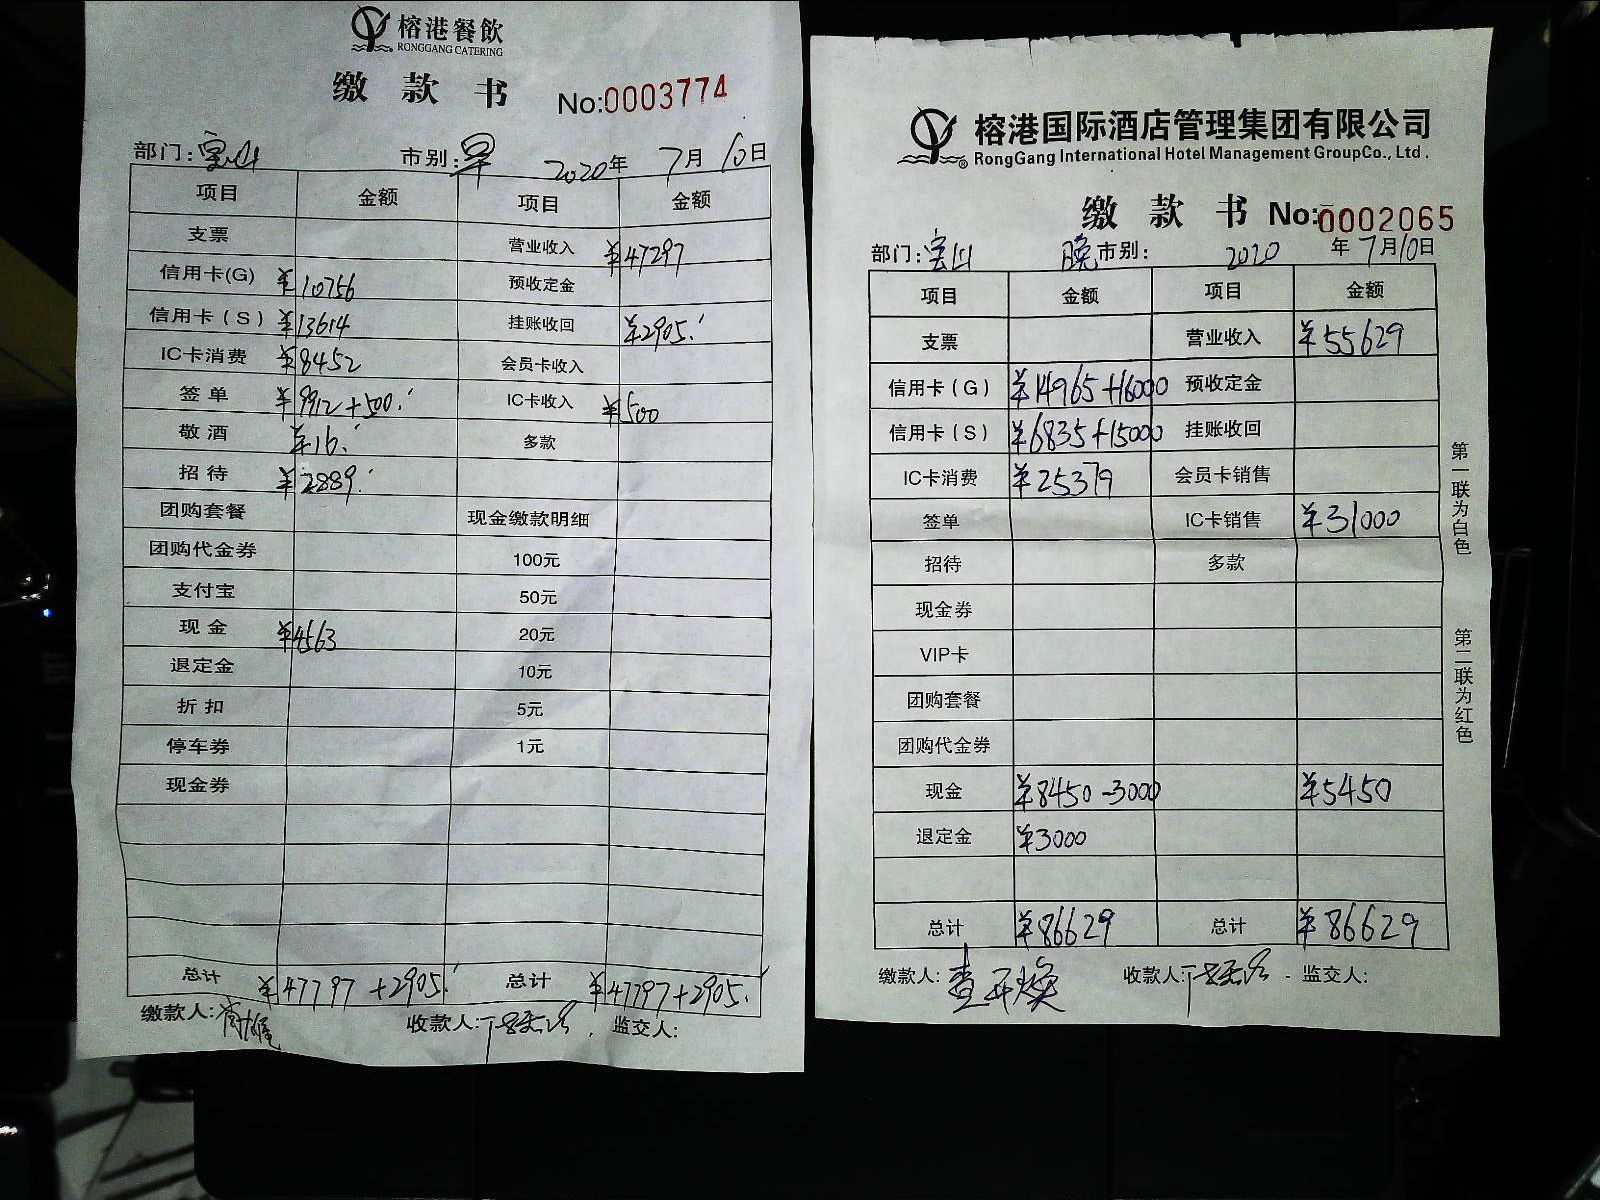 榕港餐飲
RONGGANG CATERING
缴款书 No:0003774
部门:宝山 市别:早 2020年7月10日
项目 金额 项目 金额
支票 营业收入 ¥47297
信用卡(G) ¥10756 预收定金
信用卡(S) ¥13614 挂账收回 ¥2905.
IC卡消费 ¥8452 会员卡收入
签单 ¥9912+500. IC卡收入 ¥500
敬酒 ¥16. 多款
招待 ¥2889.
团购套餐 现金缴款明细
团购代金券 100元
支付宝 50元
现金 ¥4563 20元
退定金 10元
折扣 5元
停车券 1元
现金券
总计 ¥47797+2905. 总计 ¥47797+2905.
缴款人: 收款人: 监交人:
榕港国际酒店管理集团有限公司
® RongGang International Hotel Management GroupCo., Ltd.
缴款书 No:0002065
部门:宝山 晚市别: 2020年7月10日
项目 金额 项目 金额
支票 营业收入 ¥55629
信用卡(G) ¥14965+16000 预收定金
信用卡(S) ¥6835+15000 挂账收回
IC卡消费 ¥25379 会员卡销售
签单 IC卡销售 ¥31000
招待 多款
现金券
VIP卡
团购套餐
团购代金券
现金 ¥8450-3000 ¥5450
退定金 ¥3000
总计 ¥86629 总计 ¥86629
缴款人: 收款人: 监交人:
第一联为白色
第二联为红色